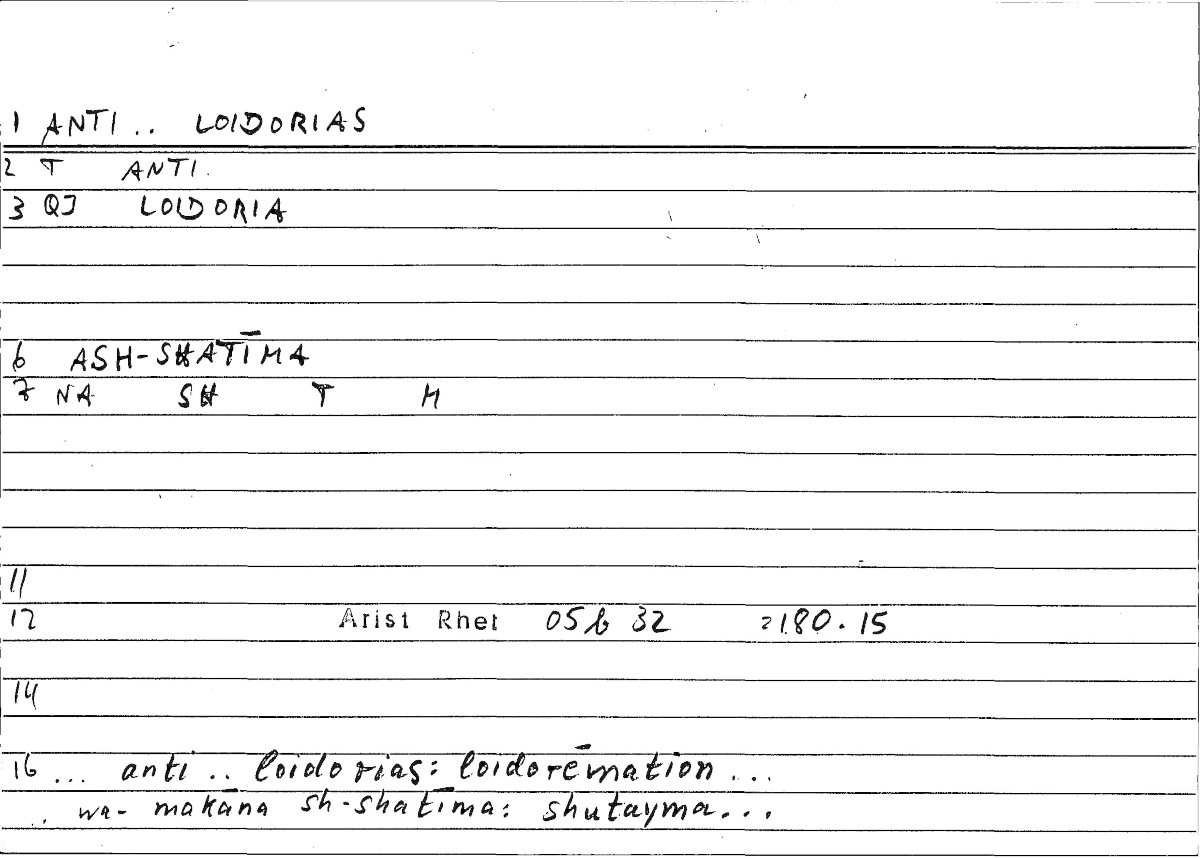 1 ANTI .. LOIDORIAS
2 T ANTI.
3 QJ LOIDORIA
6 ASH-SHATĪMA
7 NA SH T M
11
12 Arist Rhet 05b 32 =180.15
14
16 ... anti .. loidorias: loidorēmation ...
.. wa- makāna sh-shatīma: shutayma...